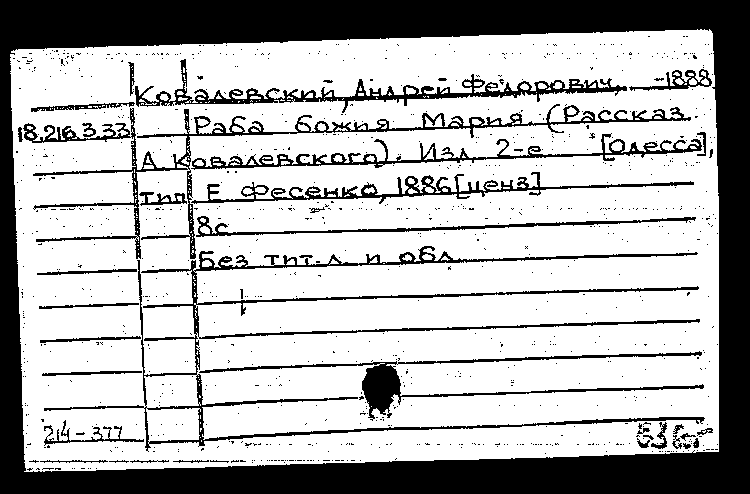 Ковалевский, Андрей Федорович, -1888
18.216.3.33 Раба божия Мария. (Рассказ
А. Ковалевского). Изд. 2-е [Одесса],
тип Е Фесенко, 1886 [ценз]
8с
Без тит. л. и обл
214-377